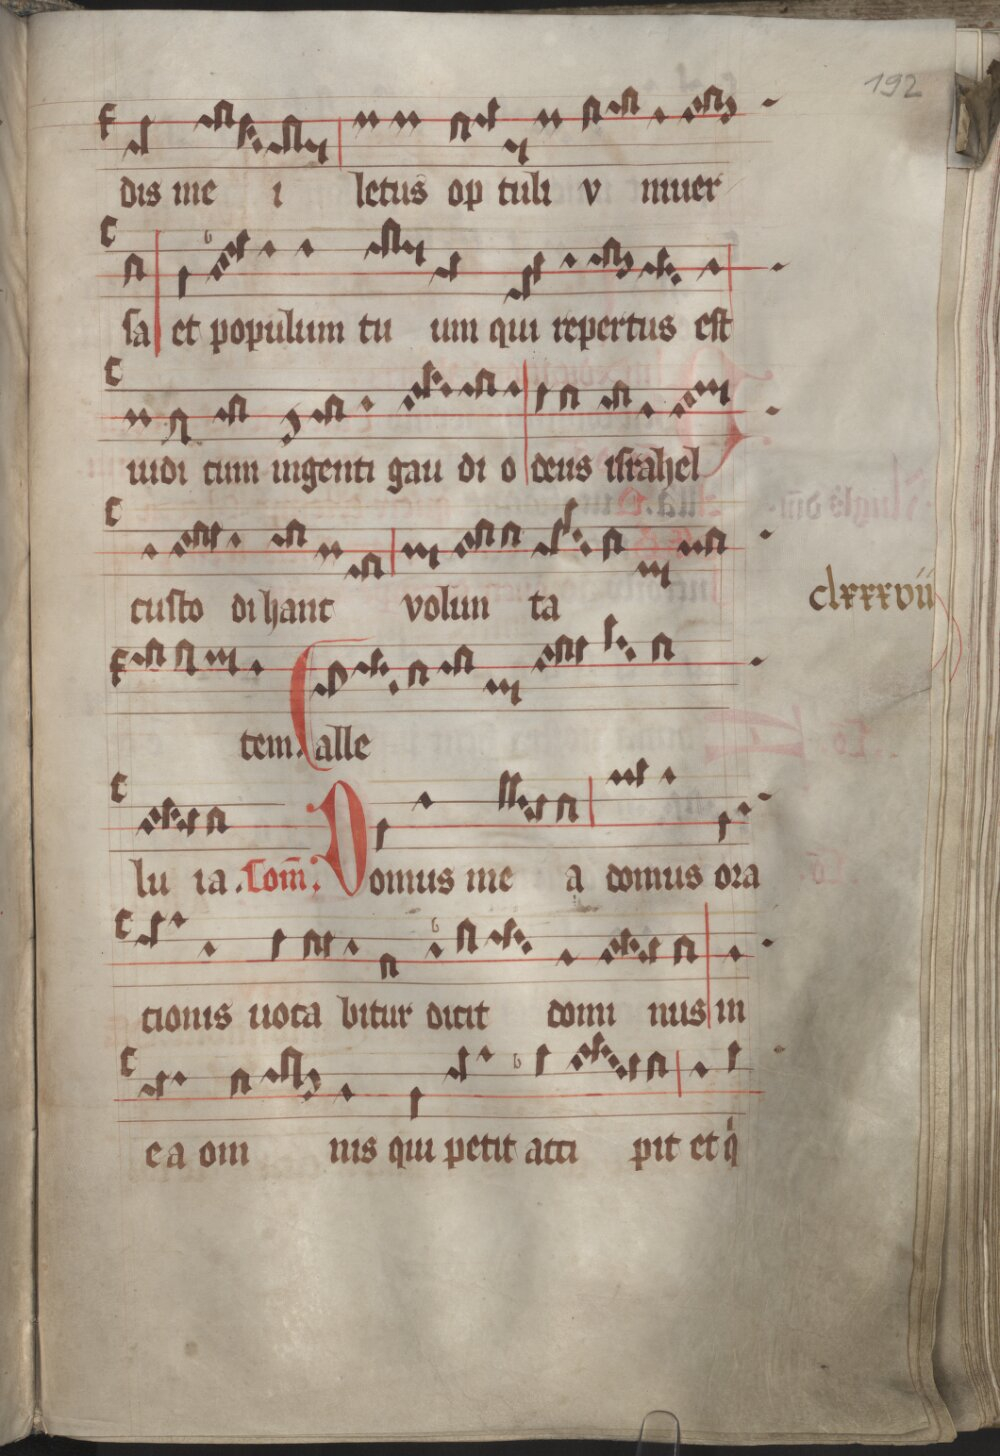 192
dis me i letus op tuli v niuer
sa et populum tu um qui repertus est
uidi cum ingenti gau di o deus israhel
custo di hanc volun ta
clxxxvii
tem. alle
lu ia. Com̄: Domus me a domus ora
cionis uoca bitur dicit domi nus in
ea om nis qui petit acci pit et q̇